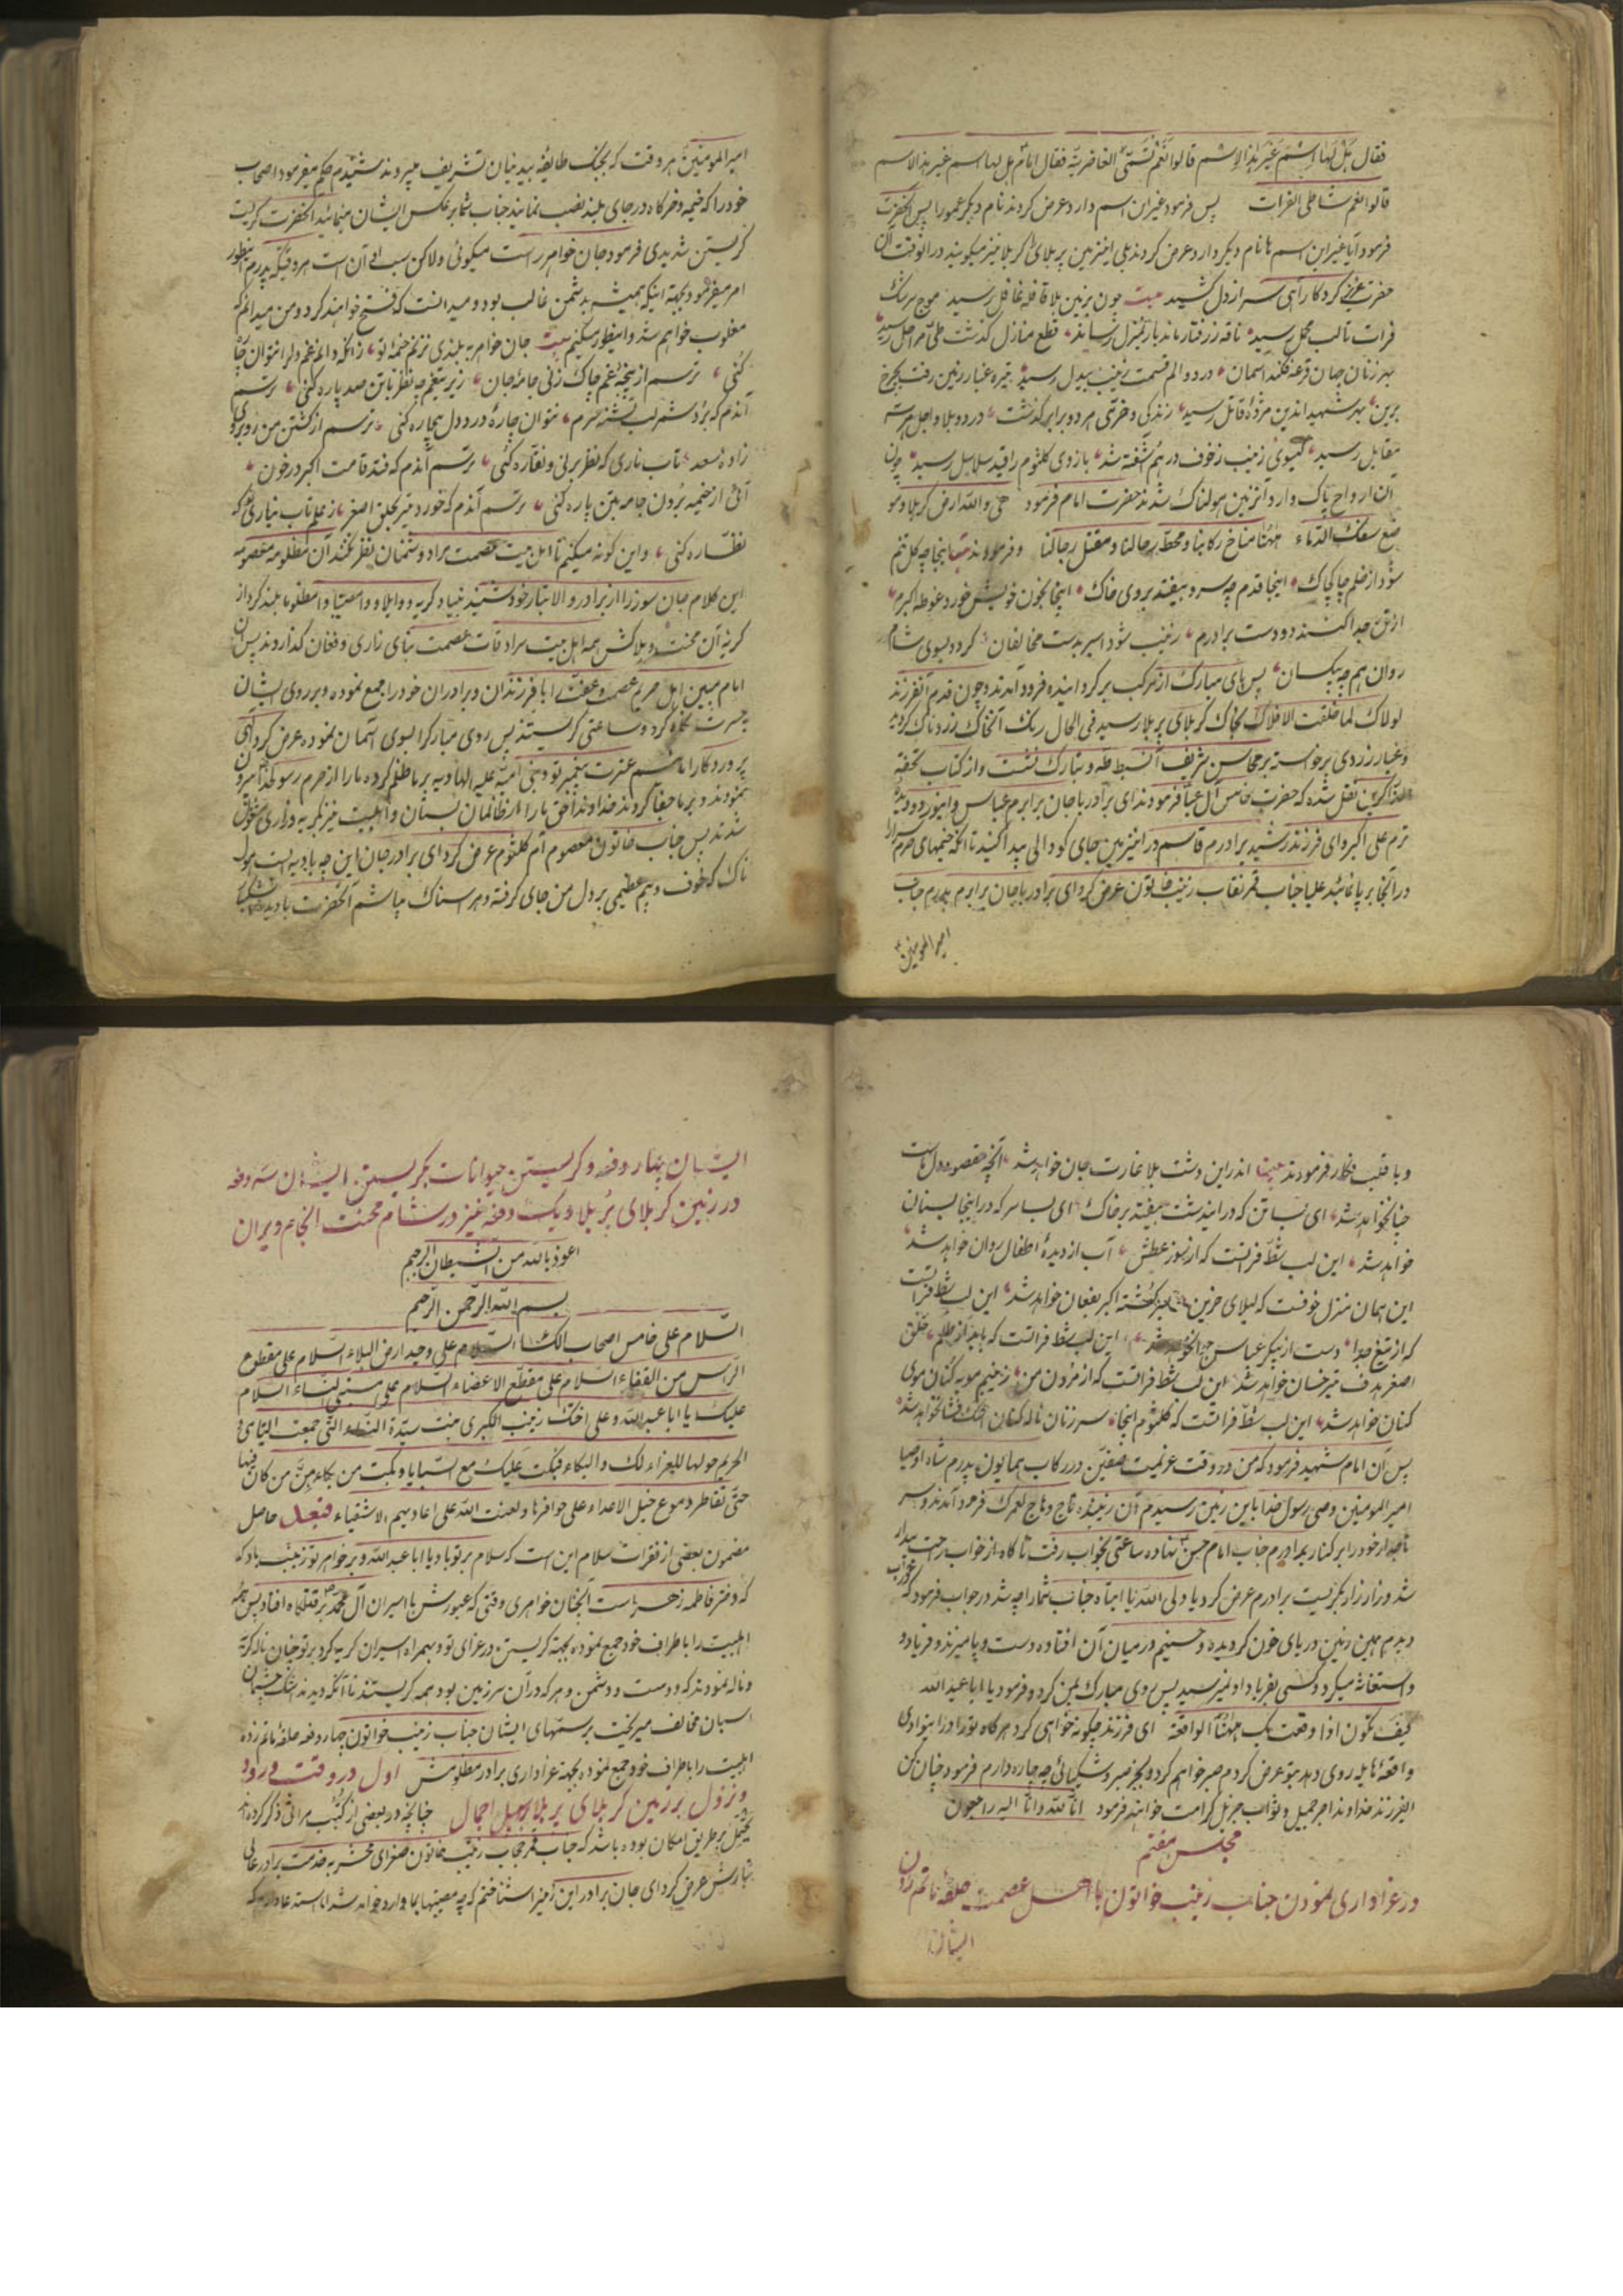 فقال بل لها اسم غیر هذا الاسم قالوا نعم تسمّی الغاضریّه فقال امام بل لها اسم غیر هذا الاسم
قالوا نعم شاطی الفرات پس فرمود غیر این اسم دارد عرض کردند نام دیگر عمورا پس آنحضرت
فرمود آیا غیر این اسم ها نام دیگر دارد عرض کردند بلی این زمین پر بلا را کربلا نیز میکویند در انوقت آن
حضرت کرد کار آهی سر از دل کشید بیت چون بزمین بلا قافله غافل رسید موج سرشک
فرات تا لب محمل رسید ناقه ز رفتار ماند بار بمنزل رساند قطع منازل کذشت طی مراحل رسید
بهر زنان جهان قرعه فکند آسمان درد و الم قسمت زینب بیدل رسید تیره غبار زمین رفت بچرخ
برین بهر شهید اندین مژدهٔ قاتل رسید زندکی و خرّمی هر دو برابر کذشت درد و بلا و اجل هر سه
مقابل رسید کیسوی زینب ز خوف در هم آشفته شد بازوی کلثوم را قید سلاسل رسید چون
آن ارواح پاک وارد آنزمین هولناک شدند حضرت امام فرمود هی والله ارض کربلا و مو
ضع سفک الدماء ههنا مناخ رکابنا و محط رحالنا و مقتل رجالنا و فرمودند بیت اینجا چه کل تنم
شود از ظلم چاک چاک اینجا قدم چه سرو بیفتد بروی خاک اینجا بخون خویش خورد غوطه اکبرم
از تن جدا کنند دو دست برادرم زینب شود اسیر بدست مخالفان کردد بسوی شام
روان هم چه بیکسان پس پای مبارک از مرکب بر کردانیده فرود آمدند و چون قدم آنفرزند
لولاک لما خلقت الافلاک بخاک کربلای پر بلا رسید فی الحال رنک آنخاک زرد ناک کردید
و غبار زردی برخواسته بر محاسن شریف آنسبط طه و تبارک نشست و از کتاب تحفة
الذاکرین نقل شده که حضرت خامس آل عبا فرمودند ای برادر با جان برابرم عباس و اینور دو دیده
ترم علی اکبر و ای فرزند رشید برادرم قاسم در اینزمین جای کودالی پیدا کنید تا انکه خیمهای حرم سرا
در انجا بر پا نمائید علیا جناب قمر نقاب زینب خاتون عرض کرد ای برادر با جان برابرم پدرم جناب
امیر المومنین
امیر المومنین هر وقت که بجنک طایفهٔ بیدینان تشریف میبردند شنیدم حکم میفرمود اصحاب
خود را که خیمه و خرکاه در جای بلند نصب نمایند جناب شما بر عکس ایشان مینمائید آنحضرت کریست
کریستن شدیدی فرمود جان خواهر راست میکوئی ولاکن سبب او آن است هر وقتیکه پدرم اینطور
امر میفرمود بجهة اینکه همیشه بدشمن غالب بود و میدانست که فتح خواهند کرد و من میدانم که
مغلوب خواهم شد و اینطور میکنیم بیت جان خواهر به بلندی نزنم خیمهٔ تو زانکه دانم غم دلرا نتوان چاره
کنی ترسم از پنجهٔ غم چاک زنی جامهٔ جان زیر تیغم چه نظر با تن صد پاره کنی ترسم
آندم که بُرد شمر لب تشنه سرم نتوان چارهٔ درد دل بیچاره کنی ترسم از کشتن من روبروی
زادهٔ سعد تاب ناری که نظر برنی و نقاره کنی ترسم آندم که فتد قامت اکبر در خون
آئی از خیمه بُرون جامه بتن پاره کنی ترسم آندم که خورد تیر بحلق اصغر ز غلم تاب نیاری که
نظاره کنی و این کونه میکنم تا اهل بیت عصمت مرا دشمنان نظر نکنند آن مظلومه معصومه
این کلام جان سوز را از برادر والاتبار خود شنید بنیاد کریه و واویلا و وامصیبتا وامظلوما بلند کرد از
کریهٔ آن محنت و بلاکش همه اهل بیت سرادقات عصمت بنای زاری و فغان کذاردند پس آن
امام مبین اهل حریم عصمت و عفت با فرزندان و برادران خود را جمع نموده و بر روی ایشان
بحسرت نکاه کرد و ساعتی کریستند پس روی مبارک را بسوی آسمان نموده عرض کرد الهی
پروردکارا مائیم عترت پیغمبر تو و بنی امیّه علیه الهاویه بر ما ظلم کرده ما را از حرم رسولخدا بیرون
نمودند و بر ما جفا کردند خداوندا حق ما را از ظالمان بستان و اهلبیت نیز بکریه و زاری مشغول
شدند پس جناب خاتون معصوم ام کلثوم عرض کرد ای برادر جان این چه بادیه است هول
ناک که خوف و بیم عظیمی بر دل من جای کرفته و هراسناک میباشم آنحضرت با دیدهٔ اشکبار
و با قلب فکار فرمودند بیت اندراین دشت بلا غارت جان خواهد شد آنچه مقصود دل ماست
چنان خواهد شد ای بسا تن که در ایندشت بیفتد بر خاک ای بسا سر که در اینجا بسنان
خواهد شد این لب شطّ فراتست که از سوز عطش آب از دیدهٔ اطفال روان خواهد شد
این همان منزل خوفست که لیلای حزین بر سر کشتهٔ اکبر بفغان خواهد شد این لب شط فراتست
که از تیغ جدا دست از پیکر عباس جوانخواهد شد این لب شط فراتست که باید از ظلم حلق
اصغر هدف تیر خسان خواهد شد این لب شط فراتست که از مردن من زینبم مویه کنان موی
کنان خواهد شد این لب شطّ فراتست که کلثوم اینجا سر زنان ناله کنان اشک فشان خواهد شد
پس آن امام شهید فرمود که من در وقت عزیمت صفیّن در رکاب همایون پدرم شاه اوصیا
امیر المومنین وصی رسول خدا باین زمین رسیدم آن زیبنده تاج و تاج لعمرک فرود آمدند و سر
تاجدار خود را بر کنار برادرم جناب امام حسن نهاده ساعتی بخواب رفت ناکاه از خواب راحت بیدار
شد و زار زار بکریست برادرم عرض کرد یا ولی الله یا ابتاه جناب شما را چه شد در جواب فرمود که در خواب
دیدم همین زمین دریای خون کردیده و حسینم در میان آن افتاده دست و پا میزند و فریاد و
و استغاثه میکرد و کسی بفریاد او نمیرسید پس روی مبارک بمن کرد و فرمود یا ابا عبد الله
کیف تکون اذا وقعت بک ههنا الواقعة ای فرزند چکونه خواهی کرد هر کاه تو را در این وادی
واقعهٔ هایله روی دهد بتو عرض کردم صبر خواهم کرد و بجز صبر و شکیبائی چه چاره دارم فرمود چنان کن
ایفرزند خداوند اجر جمیل و ثواب جزیل کرامت خواهد فرمود انّا لله و انّا الیه راجعون
مجلس هفتم
در عزاداری نمودن جناب زینب خواتون با اهل عصمت حلقهٔ ماتم زدن
ایشان
ایشان چهار دفعه و کریستن حیوانات بکریستن ایشان سه دفعه
در زمین کربلای پُر بلا و یک دفعه نیز در شام محنت انجام ویران
اعوذ بالله من الشیطان الرجیم
بسم الله الرحمن الرحیم
السّلام علی خامس اصحاب الکساء السلام علی وحید ارض البلاء السّلام علی مقطوع
الرّاس من القفاء السّلام علی مقطّع الاعضاء السّلام علی مسبی النساء السّلام
علیک یا ابا عبد الله و علی اختک زینب الکبری بنت سیّدة النساء التی جمعت الیتامی و
الحریم حولها للعزاء لک و البکاء فبکت علیک مع السبایا و بکت من بکاءهنّ من کان فیها
حتّی تقاطر دموع خیل الاعداء علی حوافرها و لعنت الله علی اعادیهم الاشقیاء فبعد حاصل
مضمون بعضی از فقرات سلام این است که سلام بر تو باد یا ابا عبد الله و بر خواهر تو زینب باد که
که دختر فاطمه زهراست آنچنان خواهری وقتی که عبورش با اسیران آل محمد بر قتلکاه افتاد پس همهٔ
اهلبیت را باطراف خود جمع نموده بجهة کریستن در عزای تو و بهمراه اسیران کریه کرد بر تو چنان ناله کرده
و ناله نمودند که دوست و دشمن و هر که در آن سرزمین بود همه کریستند تا آنکه دیدند اشک چشمان
اسبان مخالف میریخت بر سمهای ایشان جناب زینب خواتون چهار دفعه حلقهٔ ماتم زده
اهلبیت را باطراف خود جمع نموده بجهة عزاداری برادر مظلومش اول در وقت ورود
و نزول بر زمین کربلای پر بلا بر سبیل اجمال چنانچه در بعضی از کتب مراثی ذکر کرده‌اند
یحتمل بر طریق امکان بوده باشد که جناب قمر حجاب زینب خاتون صغرای محشر به خدمت برادر عالی
تبارش عرض کرد ای جان برادر این زمین را شناختم که چه مصیبتها بما وارد خواهد شد